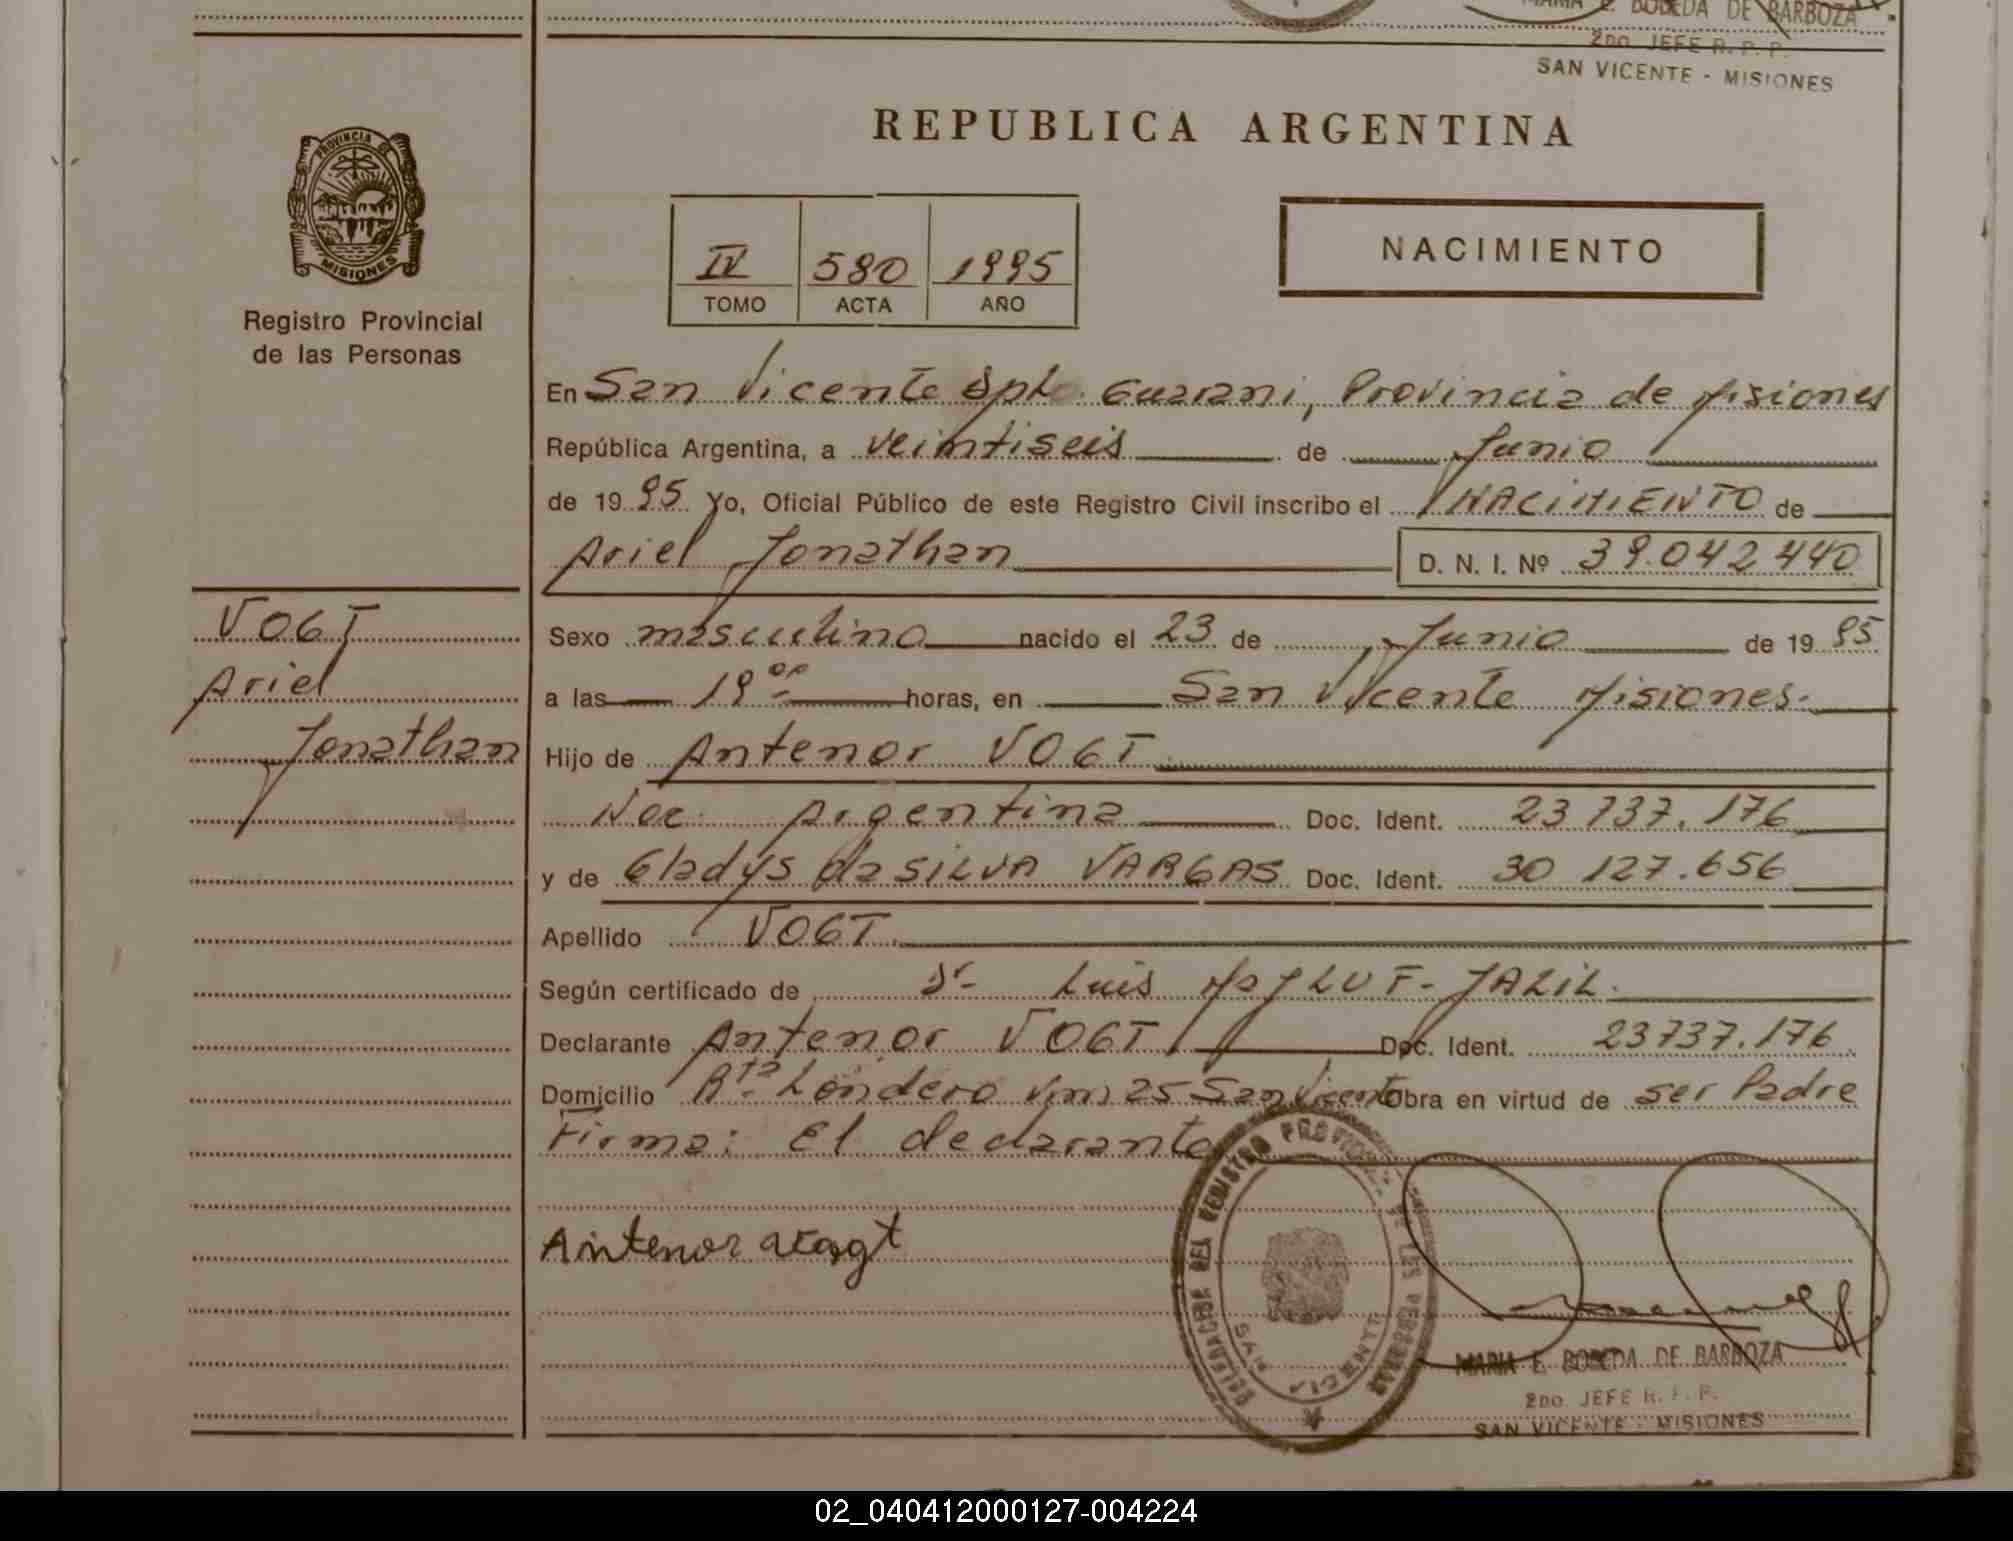 MARIA E. BOBEDA DE BARBOZA
2do. JEFE R. P. P.
SAN VICENTE - MISIONES
REPUBLICA ARGENTINA
PROVINCIA DE
MISIONES
Registro Provincial
de las Personas
IV 580 1995
TOMO ACTA AÑO
NACIMIENTO
En San Vicente Dpto. Guarani, Provincia de Misiones
República Argentina, a veintiseis de Junio
de 1995. Yo, Oficial Público de este Registro Civil inscribo el NACIMIENTO de
Ariel Jonathan D. N. I. Nº 39.042.440
VOGT
Ariel
Jonathan
Sexo masculino nacido el 23 de Junio de 1995
a las 19 00 horas, en San Vicente Misiones.
Hijo de Antenor VOGT
Nac. Argentina Doc. Ident. 23.737.176
y de Gladys da SILVA VARGAS Doc. Ident. 30 127.656
Apellido VOGT.
Según certificado de Dr. Luis MAJLUF-JALIL.
Declarante Antenor VOGT Doc. Ident. 23737.176
Domicilio Rta Londero km 25 San Vicente Obra en virtud de ser Padre
Firma: El declarante
Antenor
DELEGACION DEL REGISTRO PROVINCIAL DE LAS PERSONAS
SAN VICENTE
MARIA E. BOBEDA DE BARBOZA
2do. JEFE R. P. P.
SAN VICENTE - MISIONES
02_040412000127-004224